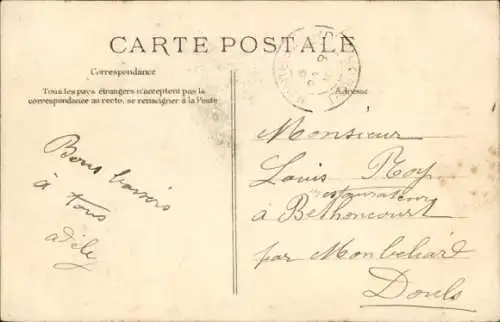 CARTE POSTALE
Correspondance
Tous les pays étrangers n'acceptent pas la
correspondance au recto, se renseigner à la Poste
Adresse
Bons baisers
à tous
adèle
Monsieur
Louis Roy
restaurateur
à Bethoncourt
par Montbeliard
Doubs